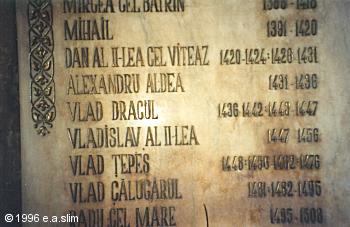 MIRCEA CEL BATRIN 1386-1418
MIHAIL 1391-1420
DAN AL II-LEA CEL VITEAZ 1420-1424-1426-1431
ALEXANDRU ALDEA 1431-1436
VLAD DRACUL 1436-1442-1443-1447
VLADISLAV AL II-LEA 1447-1456
VLAD ŢEPEŞ 1448-1456-1462-1476
VLAD CĂLUGĂRUL 1481-1482-1495
RADU CEL MARE 1495-1508
©1996 e.a.slim